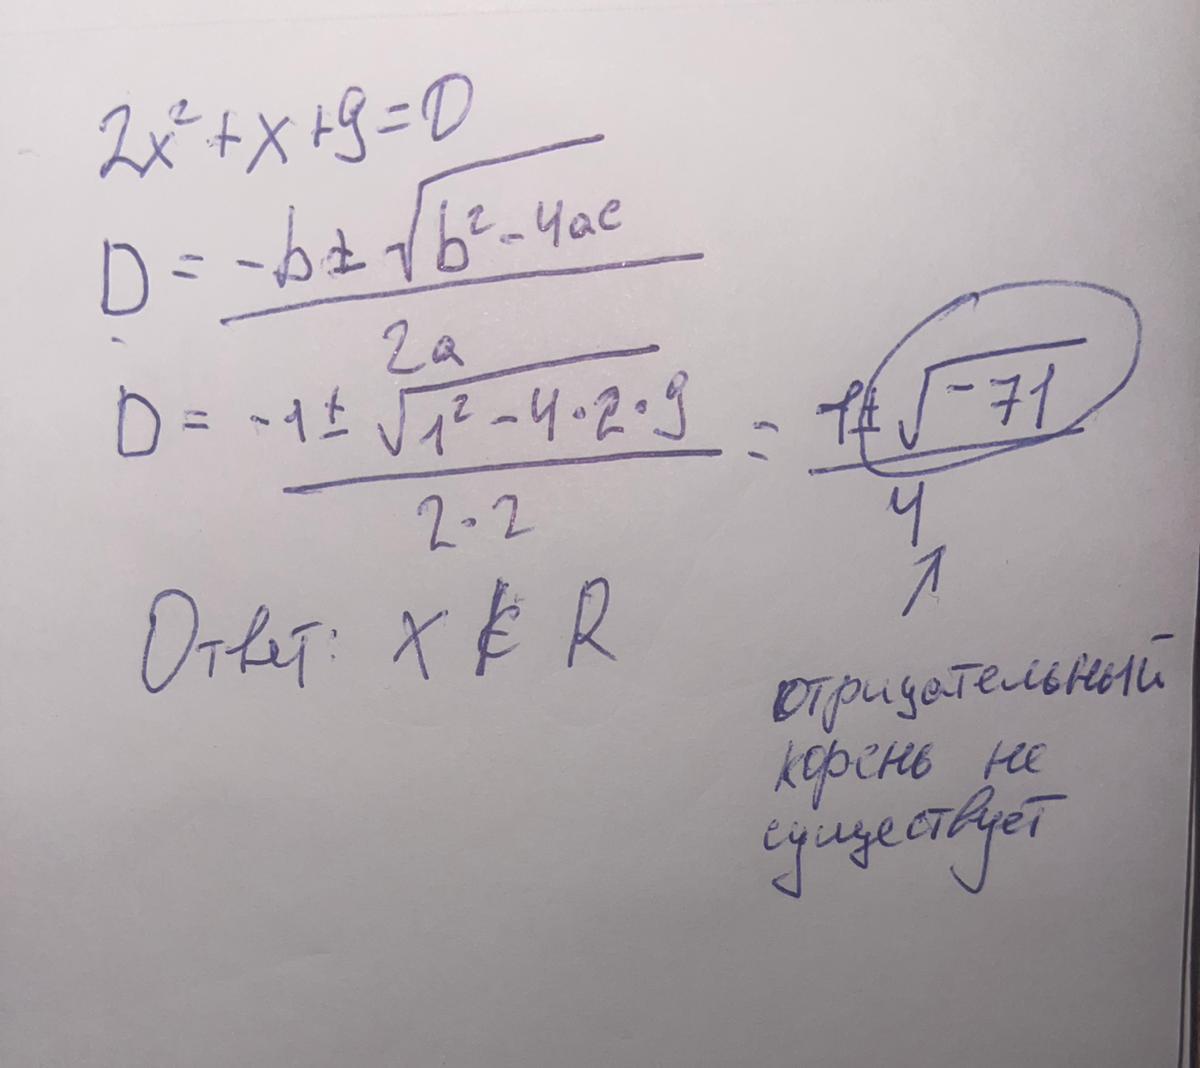 2x² + x + 9 = 0
D = (-b ± √(b² - 4ac)) / 2a
D = (-1 ± √(1² - 4·2·9)) / (2·2) = (-1 ± √(-71)) / 4
Ответ: x ∉ R
↗
отрицательный
корень не
существует